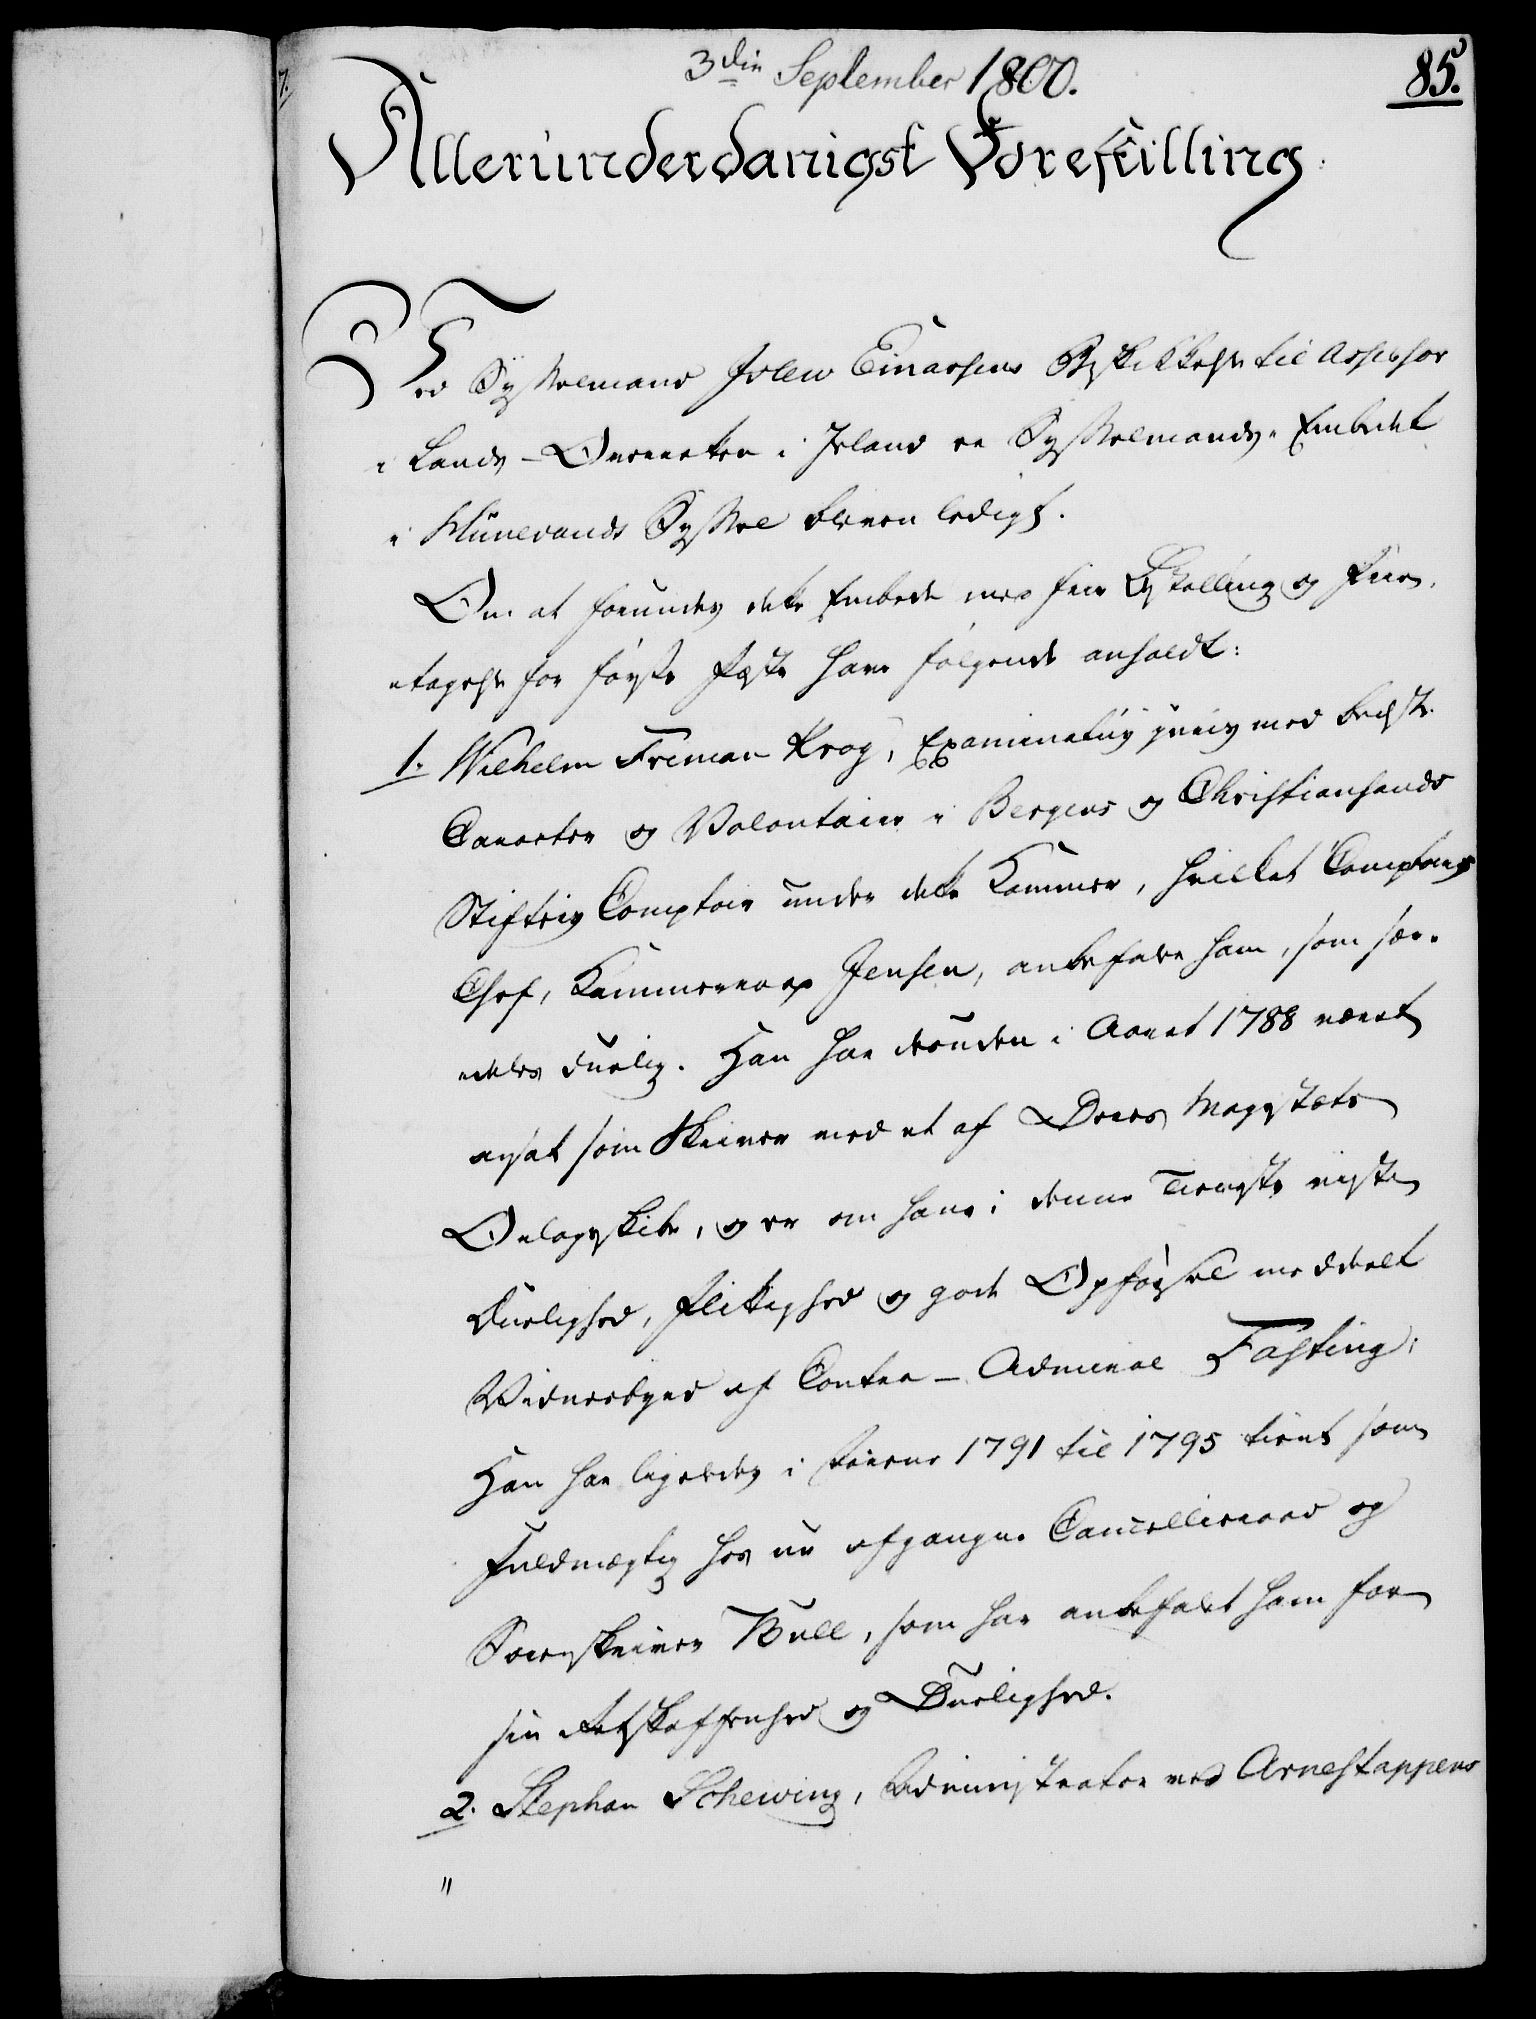 3die September 1800.
85.
7.
Allerunderdanigst Forestilling.
Ved Sysselmand Islev Einarsens Beskikkelse til Assessor
i Lands-Overretten i Island er Sysselmands-Embedet
i Hunevands Syssel bleven ledigt.
Om at forundes dette Embede med frie Bestalling og
-tagelse for første har følgende anholdt:
1. Wilhelm Freman Krog, Examinatus juris med bedste
Caracter og Volontair i Bergens og Christiansands
Stifters Comptoir under dette Kammer, hvilket Comptoirs
Chef, Kammerraad Jensen, anbefaler ham, som sær-
deles duelig. Han har desuden i Aaret 1788 været
ansat som Skriver med et af Deres Majestæts
Orlogsskibe, og er om hans i denne Tieneste viiste
Duelighed, Flittighed og gode Opførsel meddeelt
Vidnesbyrd af Contra-Admiral Fasting;
Han har ligeledes i Aarene 1791 til 1795 tient som
Fuldmægtig hos nu afgangne Cancelliraad og
Sorenskriver Bull, som har anbefalet ham for
sin Retskaffenhed og Duelighed.
2. Stephan Scheving, Administrator ved Arnestappens
"